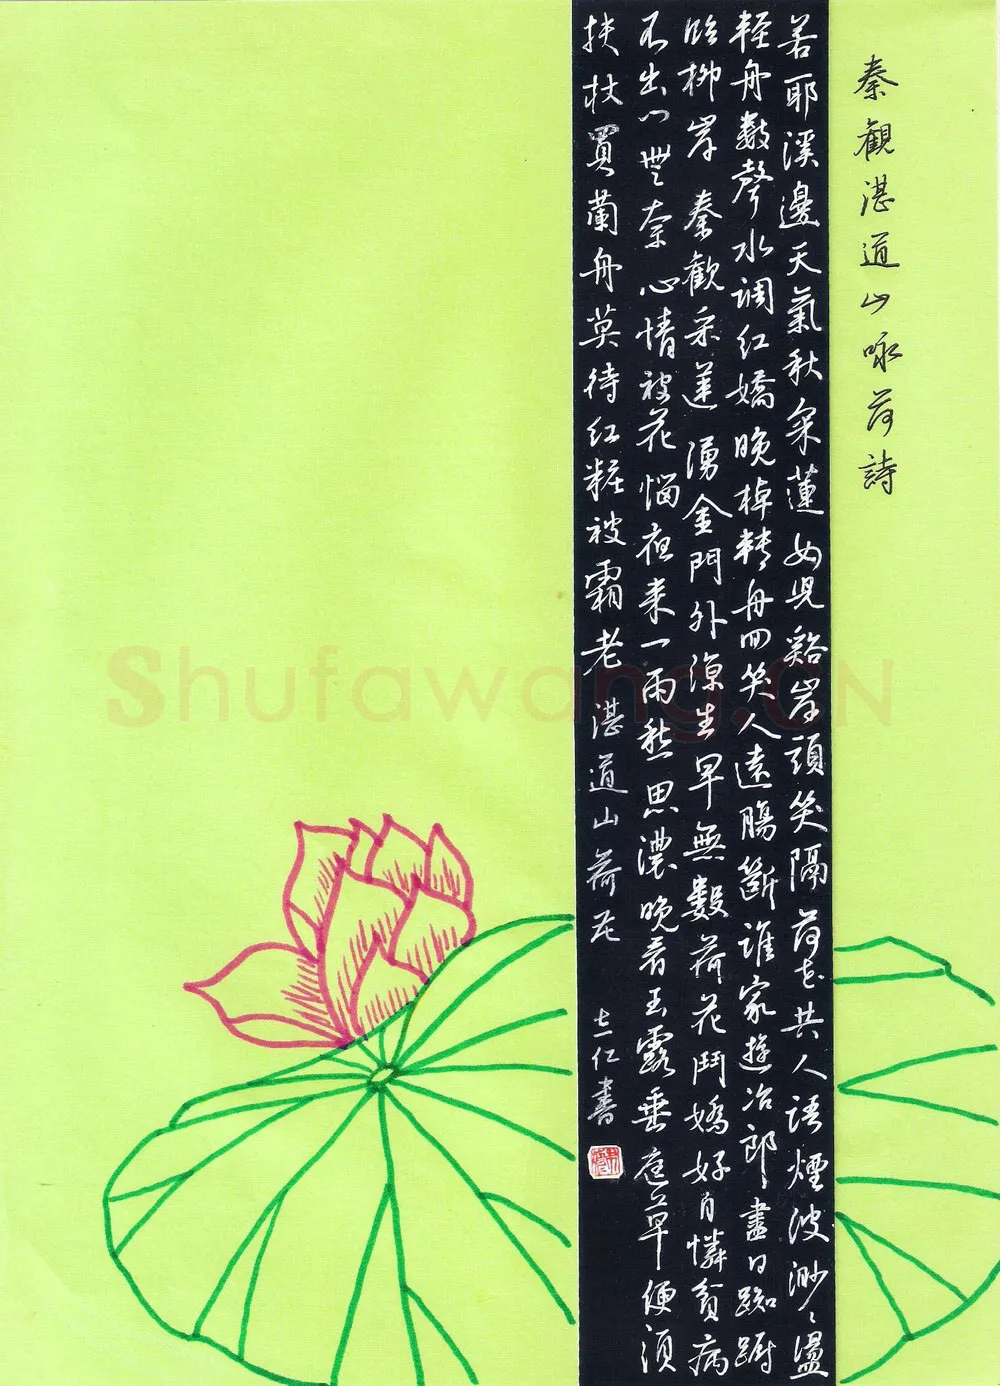 秦觀湛道山咏荷詩
若耶溪邊天氣秋采蓮女児谿岸頭笑隔荷花共人語煙波渺渺盪
輕舟數聲水調紅嬌晚棹轉舟回笑人遠腸斷誰家遊冶郎盡日踟躕
臨柳岸 秦歡采蓮 湧金門外凉生早無數荷花鬥嬌好自憐貧病
不出门無奈心情被花惱夜来一雨愁思濃晚看玉露垂庭草便須
扶杖買蘭舟莫待红粧被霜老 湛道山荷花 志仁書
Shufawang.CN